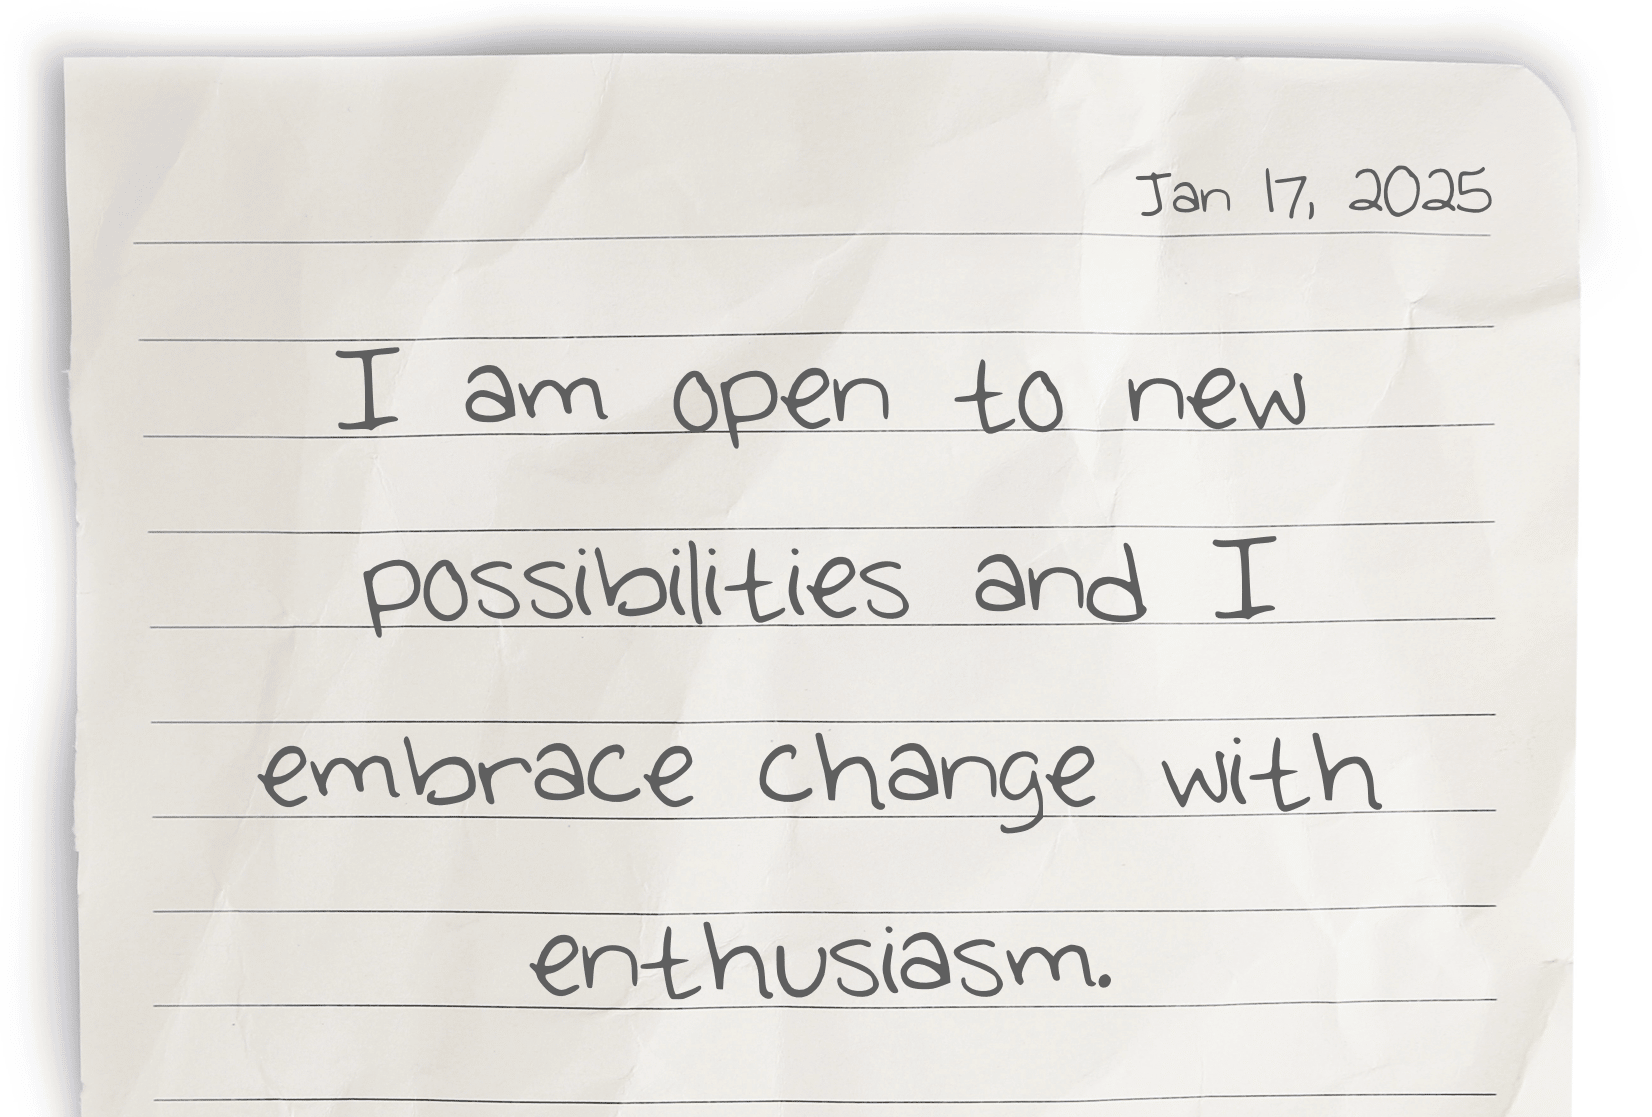 Jan 17, 2025
I am open to new
possibilities and I
embrace change with
enthusiasm.